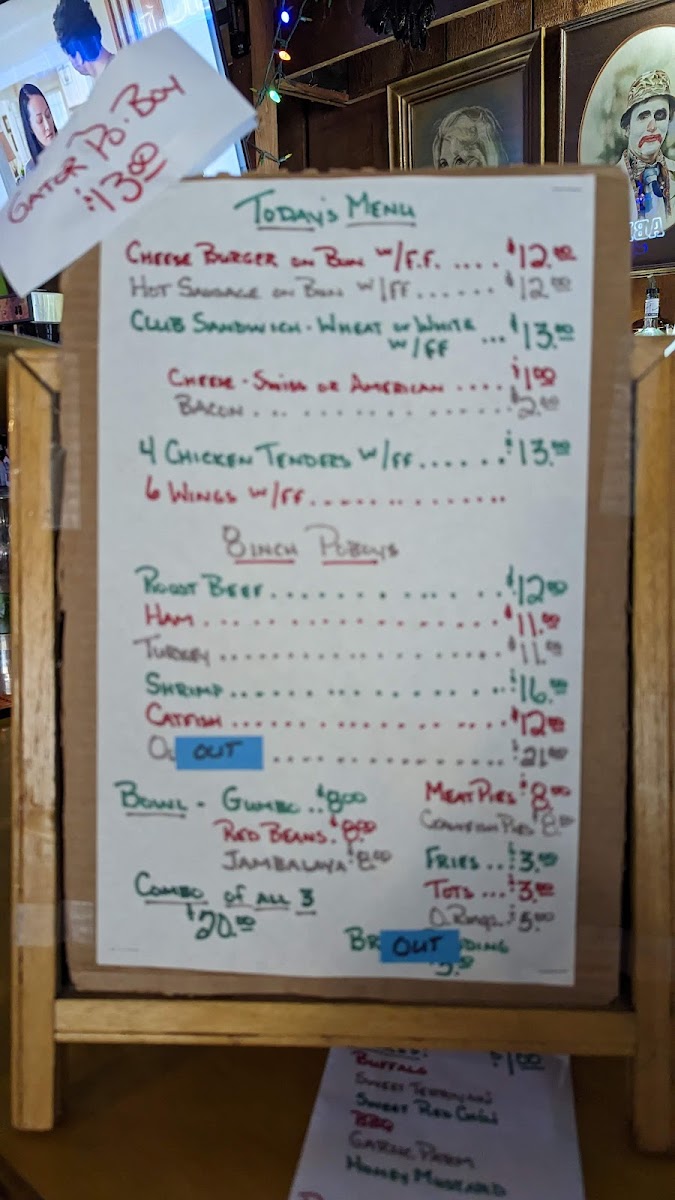 GATOR PO-BOY
$13.00
TODAY'S MENU
CHEESE BURGER ON BUN W/F.F. .... $12.00
HOT SAUSAGE ON BUN W/FF...... $12.00
CLUB SANDWICH - WHEAT OR WHITE
W/FF ... $13.00
CHEESE - SWISS OR AMERICAN .... $1.00
BACON .............. $2.00
4 CHICKEN TENDERS W/FF...... $13.00
6 WINGS W/FF..............
8 INCH POBOYS
ROAST BEEF.............. $12.00
HAM.............. $11.00
TURKEY.............. $11.00
SHRIMP.............. $16.00
CATFISH.............. $12.00
OUT .............. $21.00
BOWL - GUMBO .. $8.00
RED BEANS. $8.00
JAMBALAYA $8.00
COMBO OF ALL 3
$20.00
MEAT PIES $8.00
CRAWFISH PIES $8.00
FRIES .. $3.00
TOTS ... $3.00
O.RINGS. $5.00
BR OUT DDING
BUFFALO
SWEET TERIYAKI
SWEET RED CHILI
BBQ
GARLIC PARM
HONEY MUSTARD